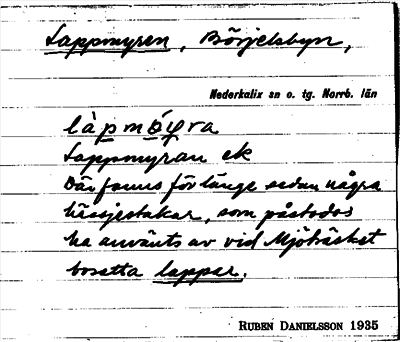 Lappmyren, Börjelsbyn,
Nederkalix sn o. tg. Norrb. län
làpmó̱y̨ra
Lappmyran ek
Där fanns för länge sedan några
hässjestakar, som påstodos
ha använts av vid Mjöträsket
bosatta lappar.
RUBEN DANIELSSON 1935